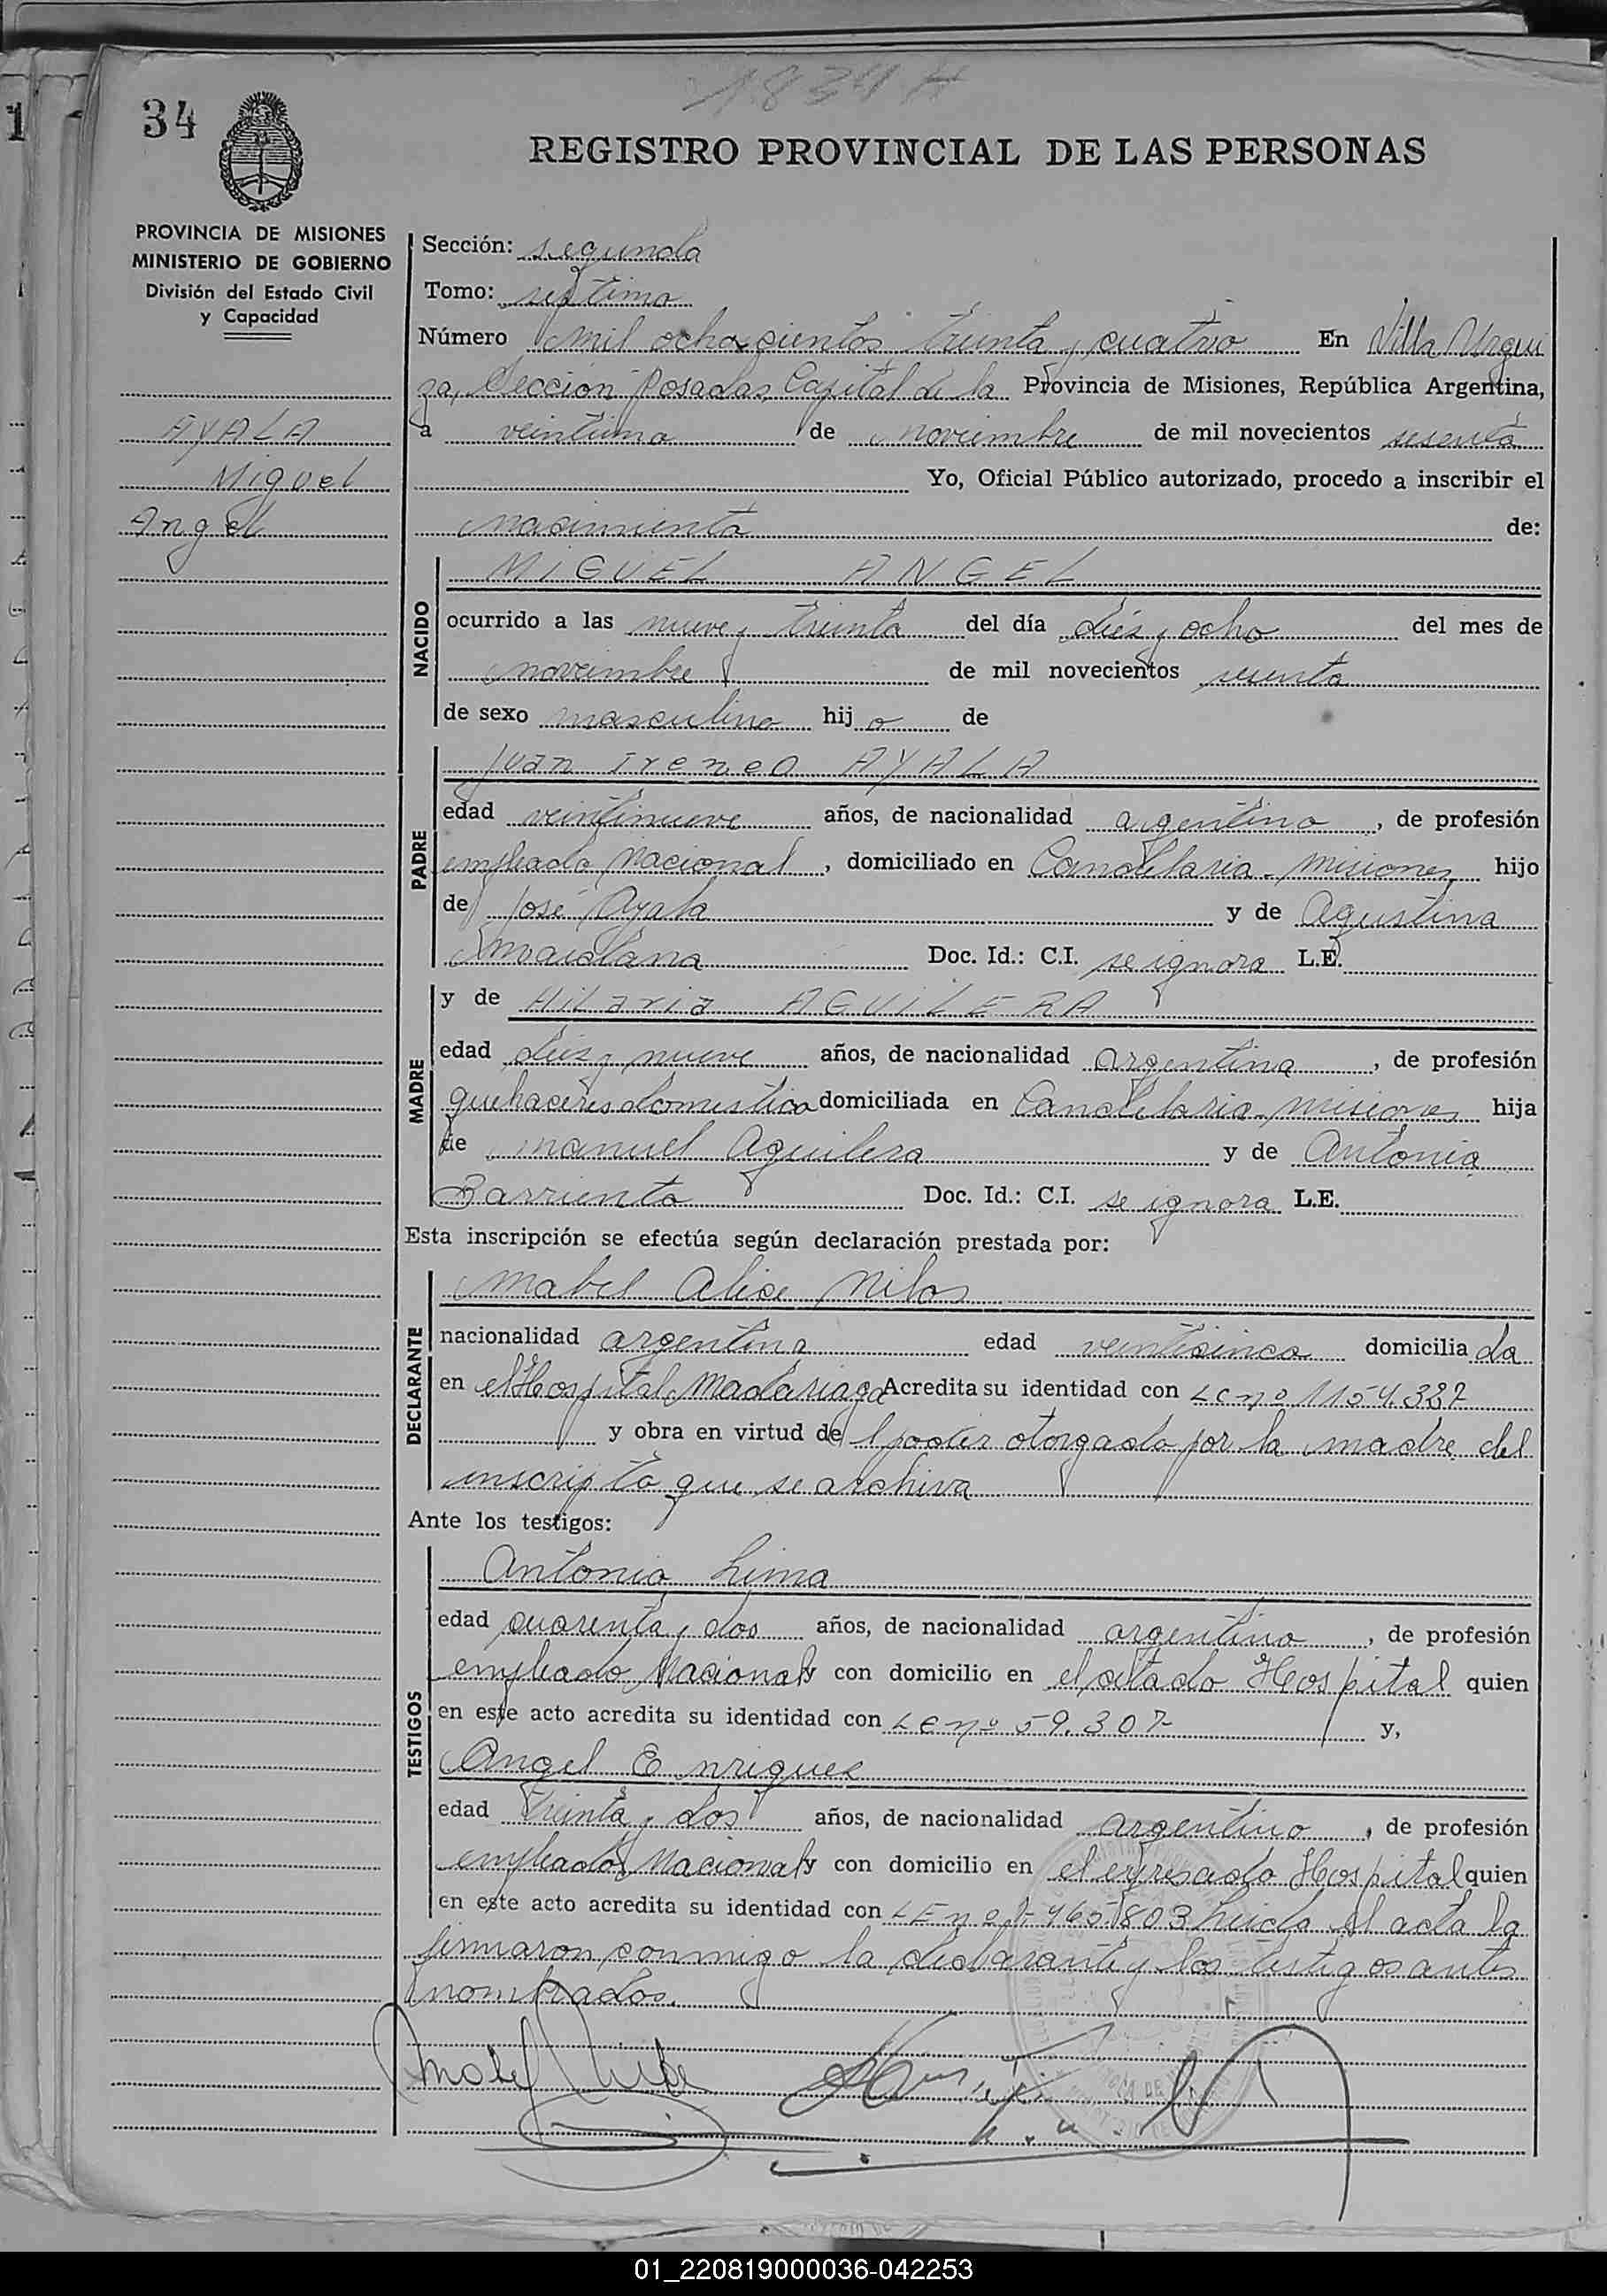 1834 H
34
REGISTRO PROVINCIAL DE LAS PERSONAS
PROVINCIA DE MISIONES
MINISTERIO DE GOBIERNO
División del Estado Civil
y Capacidad
AYALA
Miguel
Angel
Sección: segunda
Tomo: septimo
Número mil ochocientos treinta y cuatro En Villa Urqui
za, Sección Posadas, Capital de la Provincia de Misiones, República Argentina,
a veintiuno de noviembre de mil novecientos sesenta
Yo, Oficial Público autorizado, procedo a inscribir el
nacimiento de:
NACIDO
MIGUEL ANGEL
ocurrido a las nueve y treinta del día diez y ocho del mes de
noviembre de mil novecientos sesenta
de sexo masculino hijo de
PADRE
Juan Ireneo AYALA
edad veintinueve años, de nacionalidad argentino, de profesión
empleado Nacional, domiciliado en Candelaria - Misiones hijo
de José Ayala y de Agustina
Maidana Doc. Id.: C.I. se ignora L.E.
MADRE
y de Hilaria AGUILERA
edad diez y nueve años, de nacionalidad argentina, de profesión
quehaceres domestico domiciliada en Candelaria - Misiones hija
de Manuel Aguilera y de Antonia
Barriento Doc. Id.: C.I. se ignora L.E.
Esta inscripción se efectúa según declaración prestada por:
DECLARANTE
Mabel Alice
nacionalidad argentina edad veinticinco domiciliada
en el Hospital Madariaga Acredita su identidad con LC nº 1154.387
y obra en virtud del poder otorgado por la madre del
inscripto que se archiva
Ante los testigos:
TESTIGOS
Antonio Lima
edad cuarenta y dos años, de nacionalidad argentino, de profesión
empleado Nacional y con domicilio en el citado Hospital quien
en este acto acredita su identidad con LE nº 59.307 y,
Angel Enriquez
edad treinta y dos años, de nacionalidad argentino, de profesión
empleado Nacional y con domicilio en el expresado Hospital quien
en este acto acredita su identidad con LE nº 7.465.803 Leida el acta la
firmaron conmigo la declarante y los testigos antes
nombrados.
01_220819000036-042253